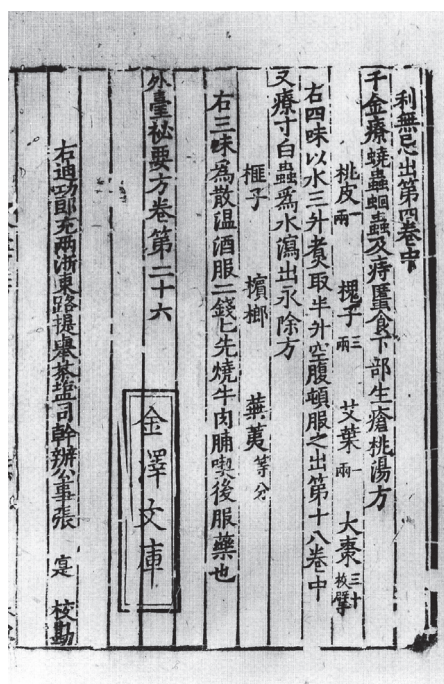 利無忌出第四卷中
千金療蟯蟲蛔蟲及痔䘌食下部生瘡桃湯方
桃皮一兩 槐子三兩 艾葉一兩 大棗三十枚擘
右四味以水三升煑取半升空腹頓服之出第十八卷中
又療寸白蟲爲水瀉出永除方
榧子 檳榔 蕪荑等分
右三味爲散温酒服二錢匕先燒牛肉脯喫後服藥也
外臺祕要方卷第二十六
金澤文庫
右迪功郎充兩浙東路提舉茶塩司幹辦公事張 寔 校勘